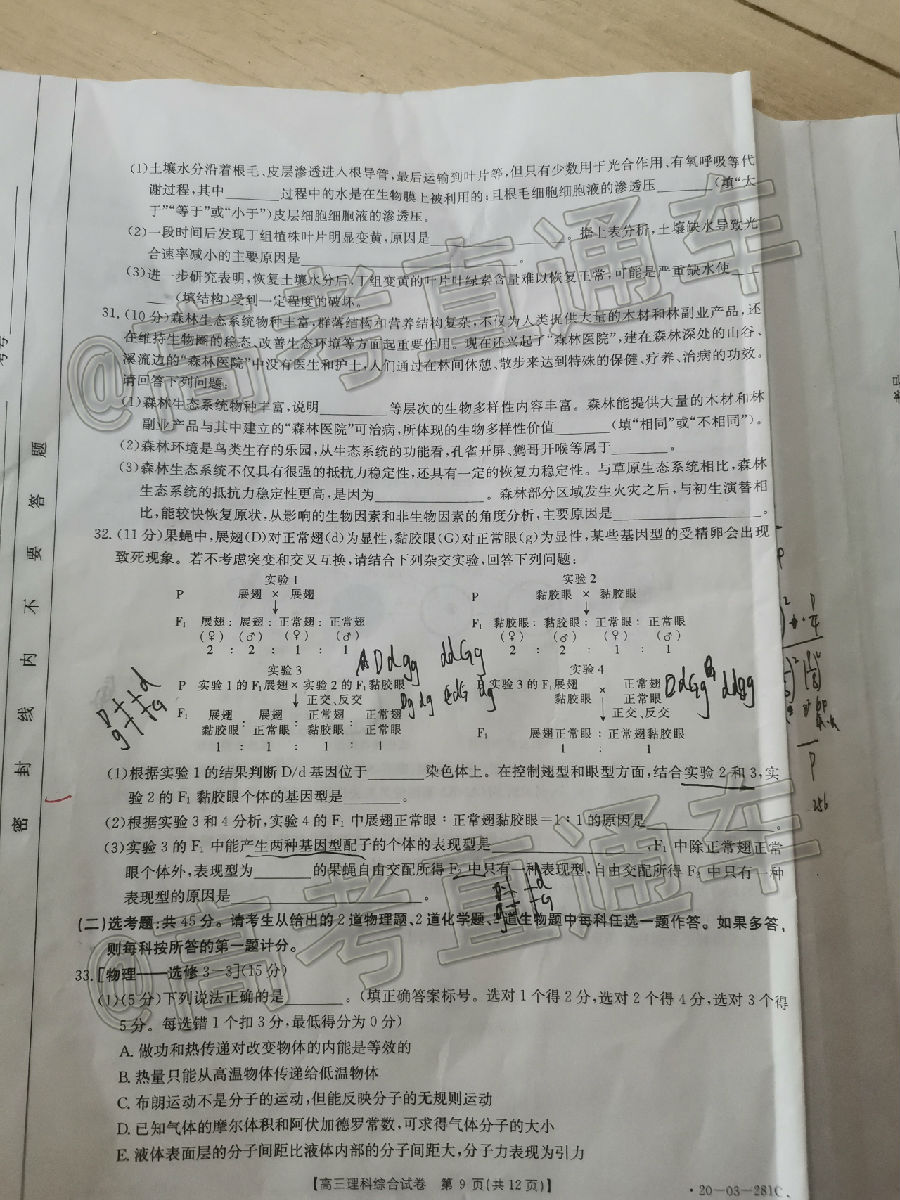 (1)土壤水分沿着根毛、皮层渗透进入根导管,最后运输到叶片等,但只有少数用于光合作用、有氧呼吸等代
谢过程,其中________过程中的水是在生物膜上被利用的;且根毛细胞细胞液的渗透压________(填“大
于”“等于”或“小于”)皮层细胞细胞液的渗透压。
(2)一段时间后发现丁组植株叶片明显变黄,原因是________________。据上表分析,土壤缺水导致光
合速率减小的主要原因是________________。
(3)进一步研究表明,恢复土壤水分后,丁组变黄的叶片叶绿素含量难以恢复正常,可能是严重缺水使____
____(填结构)受到一定程度的破坏。
31.(10分)森林生态系统物种丰富,群落结构和营养结构复杂,不仅为人类提供大量的木材和林副业产品,还
在维持生物圈的稳态、改善生态环境等方面起重要作用。现在还兴起了“森林医院”,建在森林深处的山谷、
溪流边的“森林医院”中没有医生和护士,人们通过在林间休憩、散步来达到特殊的保健、疗养、治病的功效。
请回答下列问题:
(1)森林生态系统物种丰富,说明________等层次的生物多样性内容丰富。森林能提供大量的木材和林
副业产品与其中建立的“森林医院”可治病,所体现的生物多样性价值________(填“相同”或“不相同”)。
(2)森林环境是鸟类生存的乐园,从生态系统的功能看,孔雀开屏、鹦哥开喉等属于________。
(3)森林生态系统不仅具有很强的抵抗力稳定性,还具有一定的恢复力稳定性。与草原生态系统相比,森林
生态系统的抵抗力稳定性更高,是因为________________。森林部分区域发生火灾之后,与初生演替相
比,能较快恢复原状,从影响的生物因素和非生物因素的角度分析,主要原因是________________。
32.(11分)果蝇中,展翅(D)对正常翅(d)为显性,黏胶眼(G)对正常眼(g)为显性,某些基因型的受精卵会出现
致死现象。若不考虑突变和交叉互换,请结合下列杂交实验,回答下列问题:
实验1 实验2
P 展翅 × 展翅 P 黏胶眼 × 黏胶眼
↓ ↓
F₁ 展翅 : 展翅 : 正常翅 : 正常翅 F₁ 黏胶眼 : 黏胶眼 : 正常眼 : 正常眼
(♀) (♂) (♀) (♂) (♀) (♂) (♀) (♂)
2 : 2 : 1 : 1 2 : 2 : 1 : 1
实验3 Ddgg ddGg 实验4
P 实验1的F₁展翅 × 实验2的F₁黏胶眼 实验3的F₁展翅黏胶眼 × 正常翅正常眼 DdGg ddgg
↓正交、反交 ↓正交、反交
F₁ 展翅黏胶眼 : 展翅正常眼 : 正常翅黏胶眼 : 正常翅正常眼 F₁ 展翅正常眼 : 正常翅黏胶眼
1 : 1 : 1 : 1 1 : 1
(1)根据实验1的结果判断D/d基因位于________染色体上。在控制翅型和眼型方面,结合实验2和3,实
验2的F₁黏胶眼个体的基因型是________。
(2)根据实验3和4分析,实验4的F₁中展翅正常眼:正常翅黏胶眼=1:1的原因是________________。
(3)实验3的F₁中能产生两种基因型配子的个体的表现型是________________,F₁中除正常翅正常
眼个体外,表现型为________的果蝇自由交配所得F₂中只有一种表现型,自由交配所得F₂中只有一种
表现型的原因是________________。
(二)选考题:共45分。请考生从给出的2道物理题、2道化学题、2道生物题中每科任选一题作答。如果多答,
则每科按所答的第一题计分。
33.[物理——选修3-3](15分)
(1)(5分)下列说法正确的是________。(填正确答案标号。选对1个得2分,选对2个得4分,选对3个得
5分。每选错1个扣3分,最低得分为0分)
A. 做功和热传递对改变物体的内能是等效的
B. 热量只能从高温物体传递给低温物体
C. 布朗运动不是分子的运动,但能反映分子的无规则运动
D. 已知气体的摩尔体积和阿伏加德罗常数,可求得气体分子的大小
E. 液体表面层的分子间距比液体内部的分子间距大,分子力表现为引力
【高三理科综合试卷 第9页(共12页)】
·20-03-281C·
密 封 线 内 不 要 答 题
@高考直通车
@高考直通车